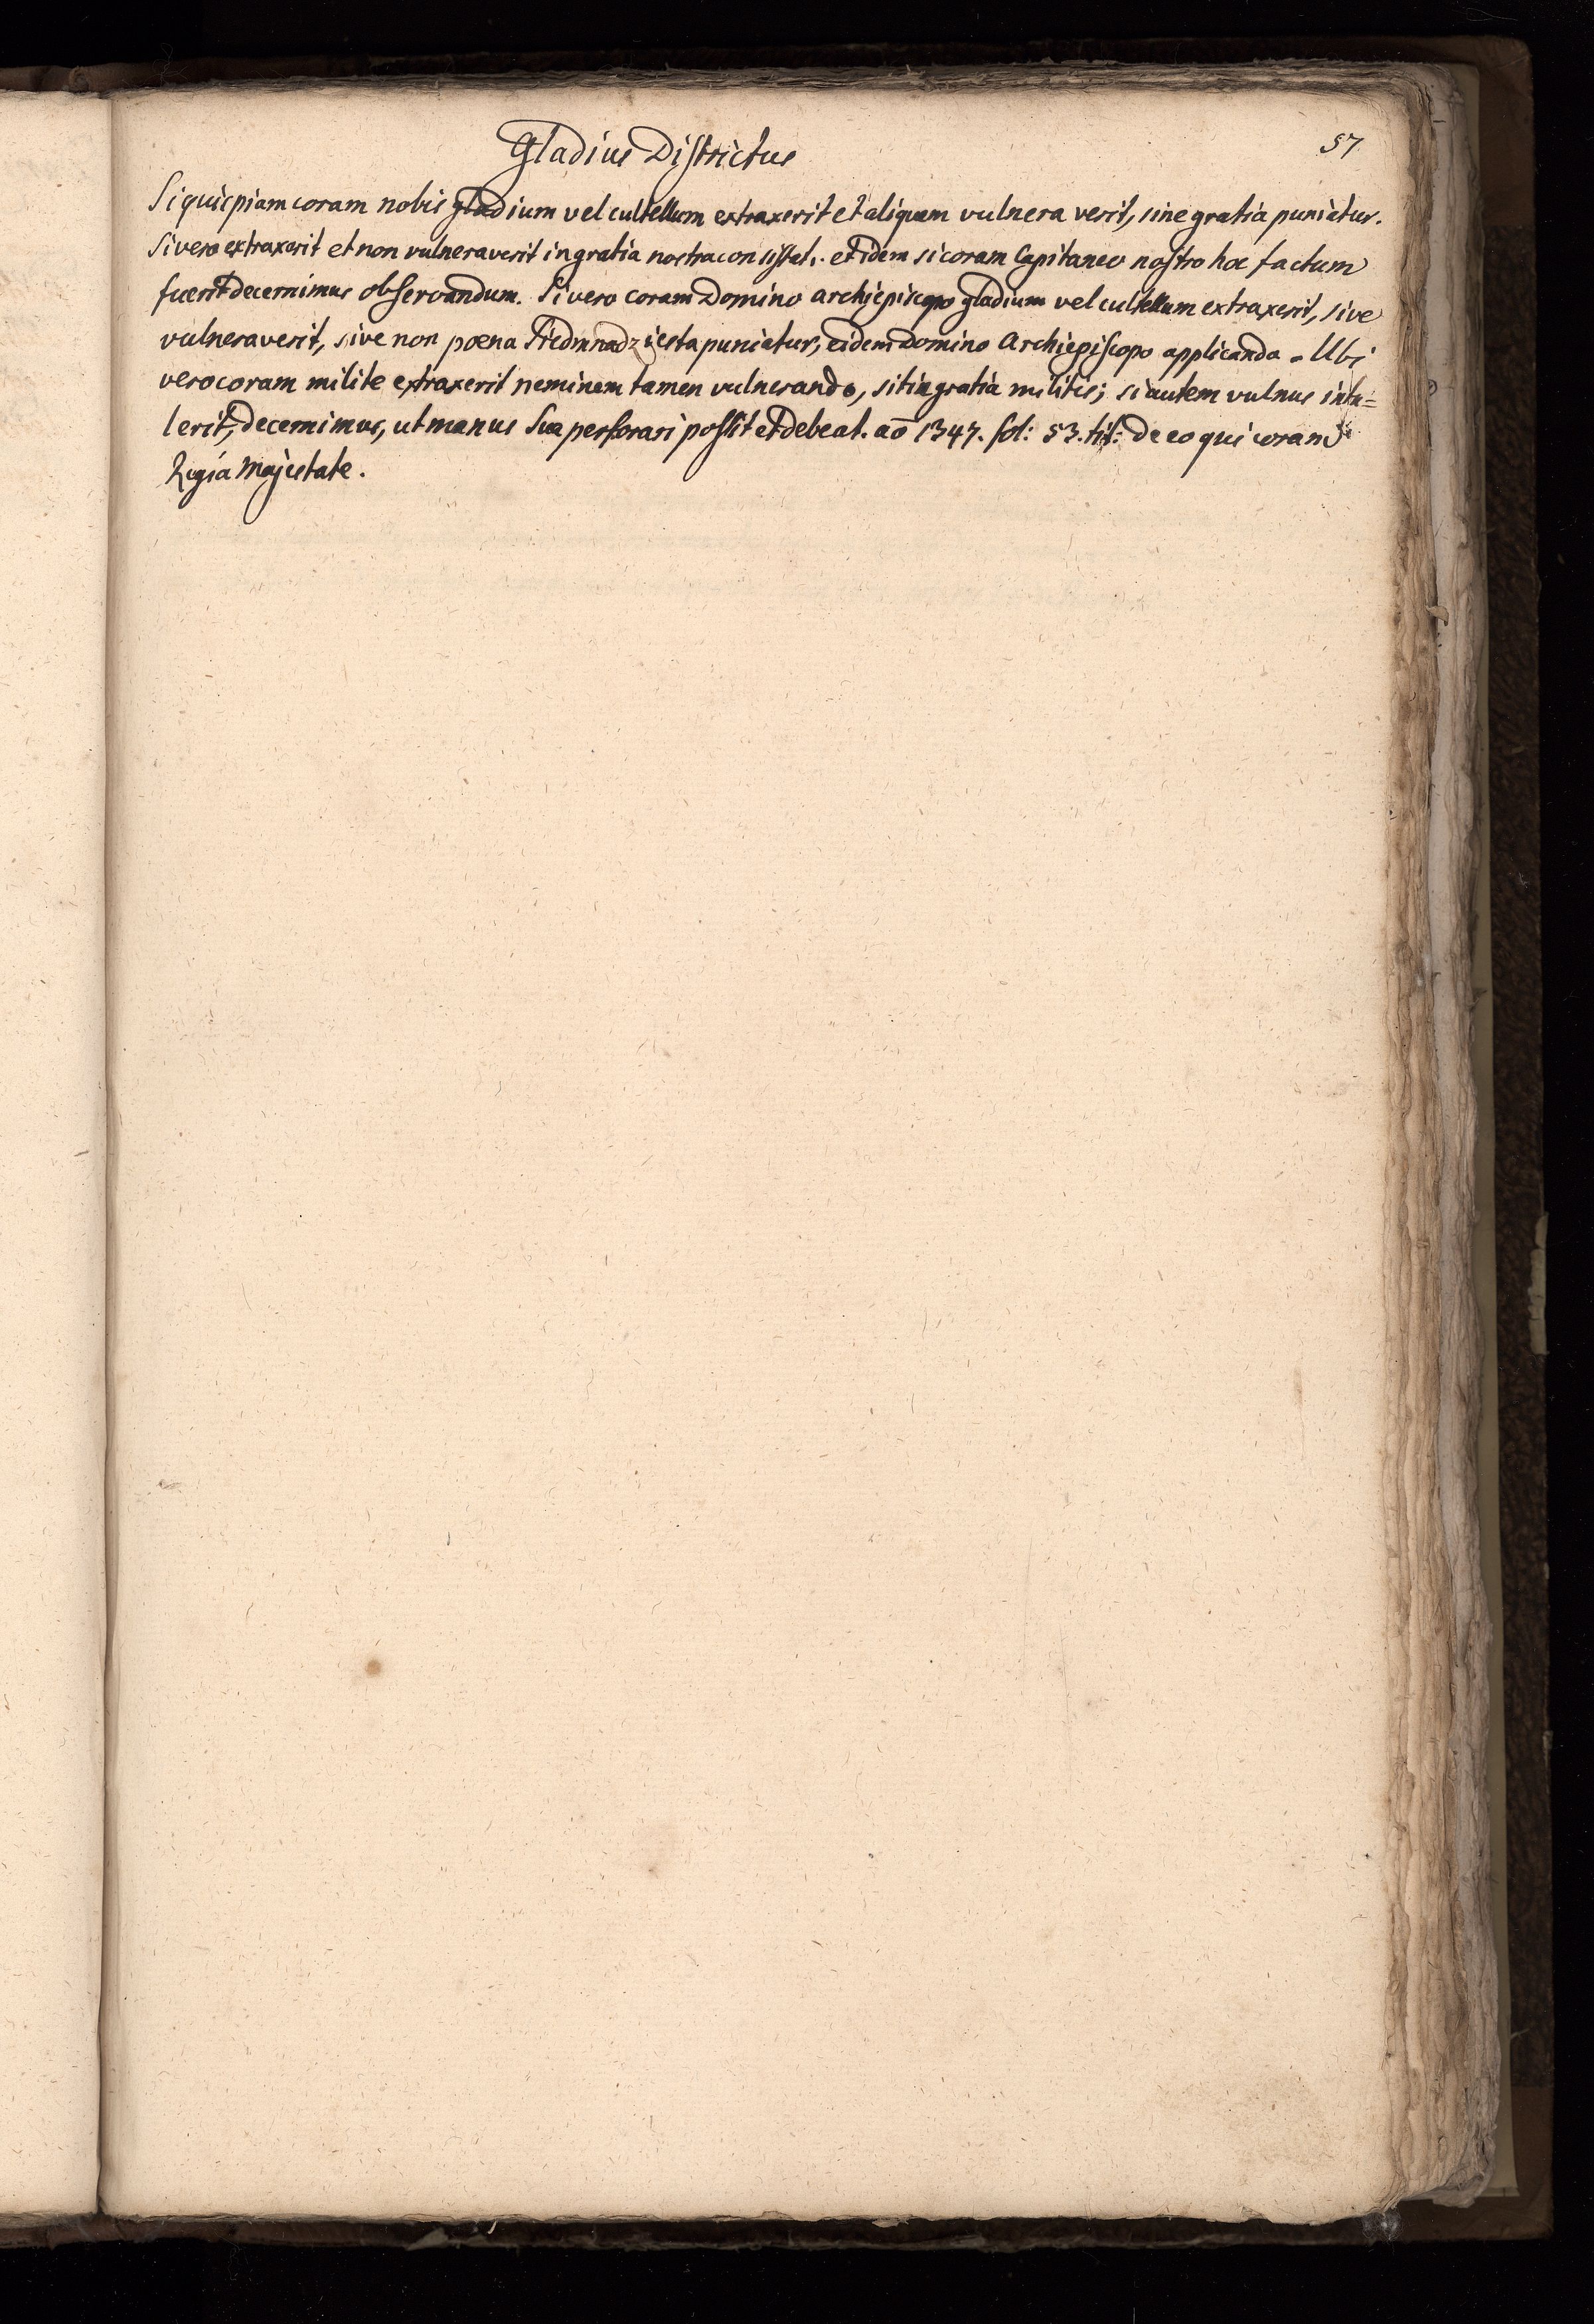 Gladius Districtus
57
Si quispiam coram nobis gladium vel cultellum extraxerit et aliquem vulneraverit, sine gratia puniatur.
Si vero extraxerit et non vulneraverit in gratia nostra consistat. et idem si coram Capitaneo nostro hoc factum
fuerit decernimus observandum. Si vero coram Domino Archiepiscopo gladium vel cultellum extraxerit, sive
vulneraverit, sive non poena Siedmnadziesta puniatur, eidem Domino Archiepiscopo applicanda. Ubi
vero coram milite extraxerit neminem tamen vulnerando, sit in gratia militis; si autem vulnus intu=
lerit, decernimus, ut manus sua perforari possit et debeat. aō 1347. fol: 53. tit: de eo qui coram
Regia Majestate.